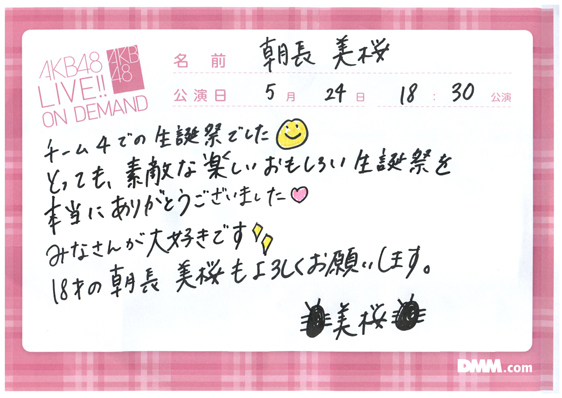 AKB48
LIVE!!
ON DEMAND
AKB
48
名前 朝長 美桜
公演日 5月 24日 18:30 公演
チーム4での生誕祭でした
とっても、素敵な楽しいおもしろい生誕祭を
本当にありがとうございました
みなさんが大好きです
18才の朝長 美桜もよろしくお願いします。
美桜
DMM.com